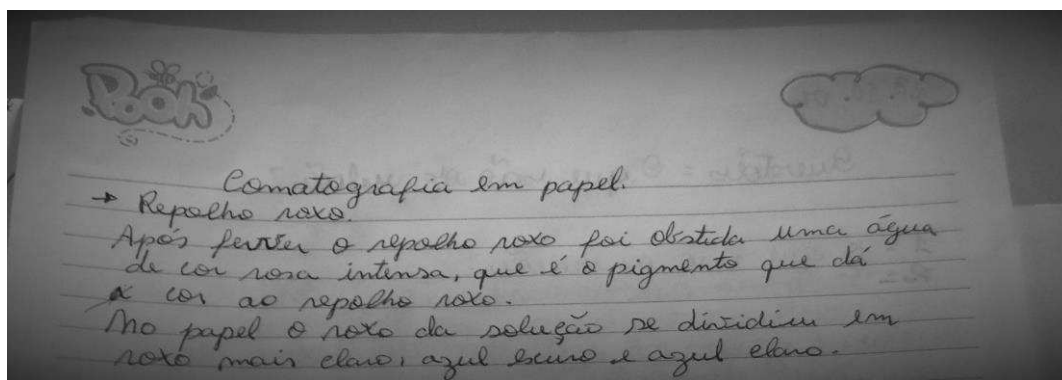 Pooh
Comatografia em papel.
→ Repolho roxo.
Após ferver o repolho roxo foi obstida uma água
de cor rosa intensa, que é o pigmento que dá
a cor ao repolho roxo.
No papel o roxo da solução se dividiu em
roxo mais claro, azul escuro e azul claro.